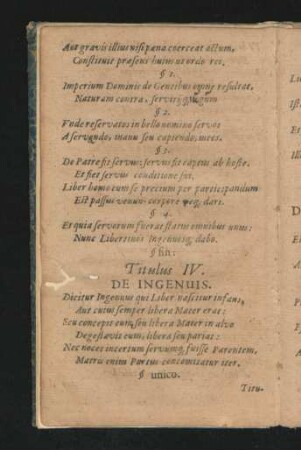 Aut gravis illius nisi pœna coerceat actum,
Constituit præsens huius ut ordo rei.
§ 1.
Imperium Domini de Gentibus
Naturam contra,
§ 2.
Unde reservatos in bello nomino servos
A servando, manu seu capiendo, meos.
§ 3.
De Patre fit servus, servus fit captus ab hoste,
Et fiet servus conditione
Liber homo cum se precium per participandum
Est passus venum corpore dari.
§ 4.
Et quia servorum fuerat status omnibus unus:
Nunc Libertinis Ingenuisq́; dabo.
§ fin:
Titulus IV.
DE INGENUIS.
Dicitur Ingenuus qui Liber nascitur infans,
Aut cuius semper libera Mater erat:
Seu concepit eum, seu libera Mater in alvo
Degestavit eum; libera seu pariat:
Nec nocet incertum servumq́; fuisse Parentem,
Matris enim Partus concomitatur iter.
§ unico.
Titu-